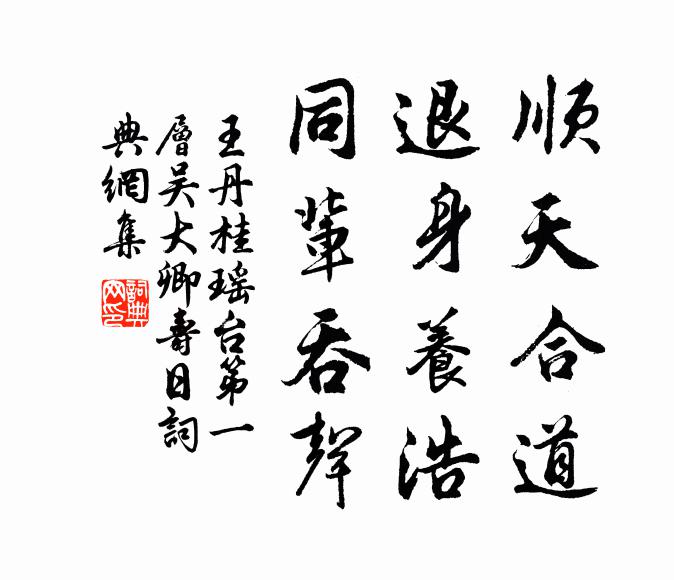 順天合道
退身養浩
同輩吞聲
王丹桂瑶台第一
層吴大卿壽日詞
典網集
詞典
网印